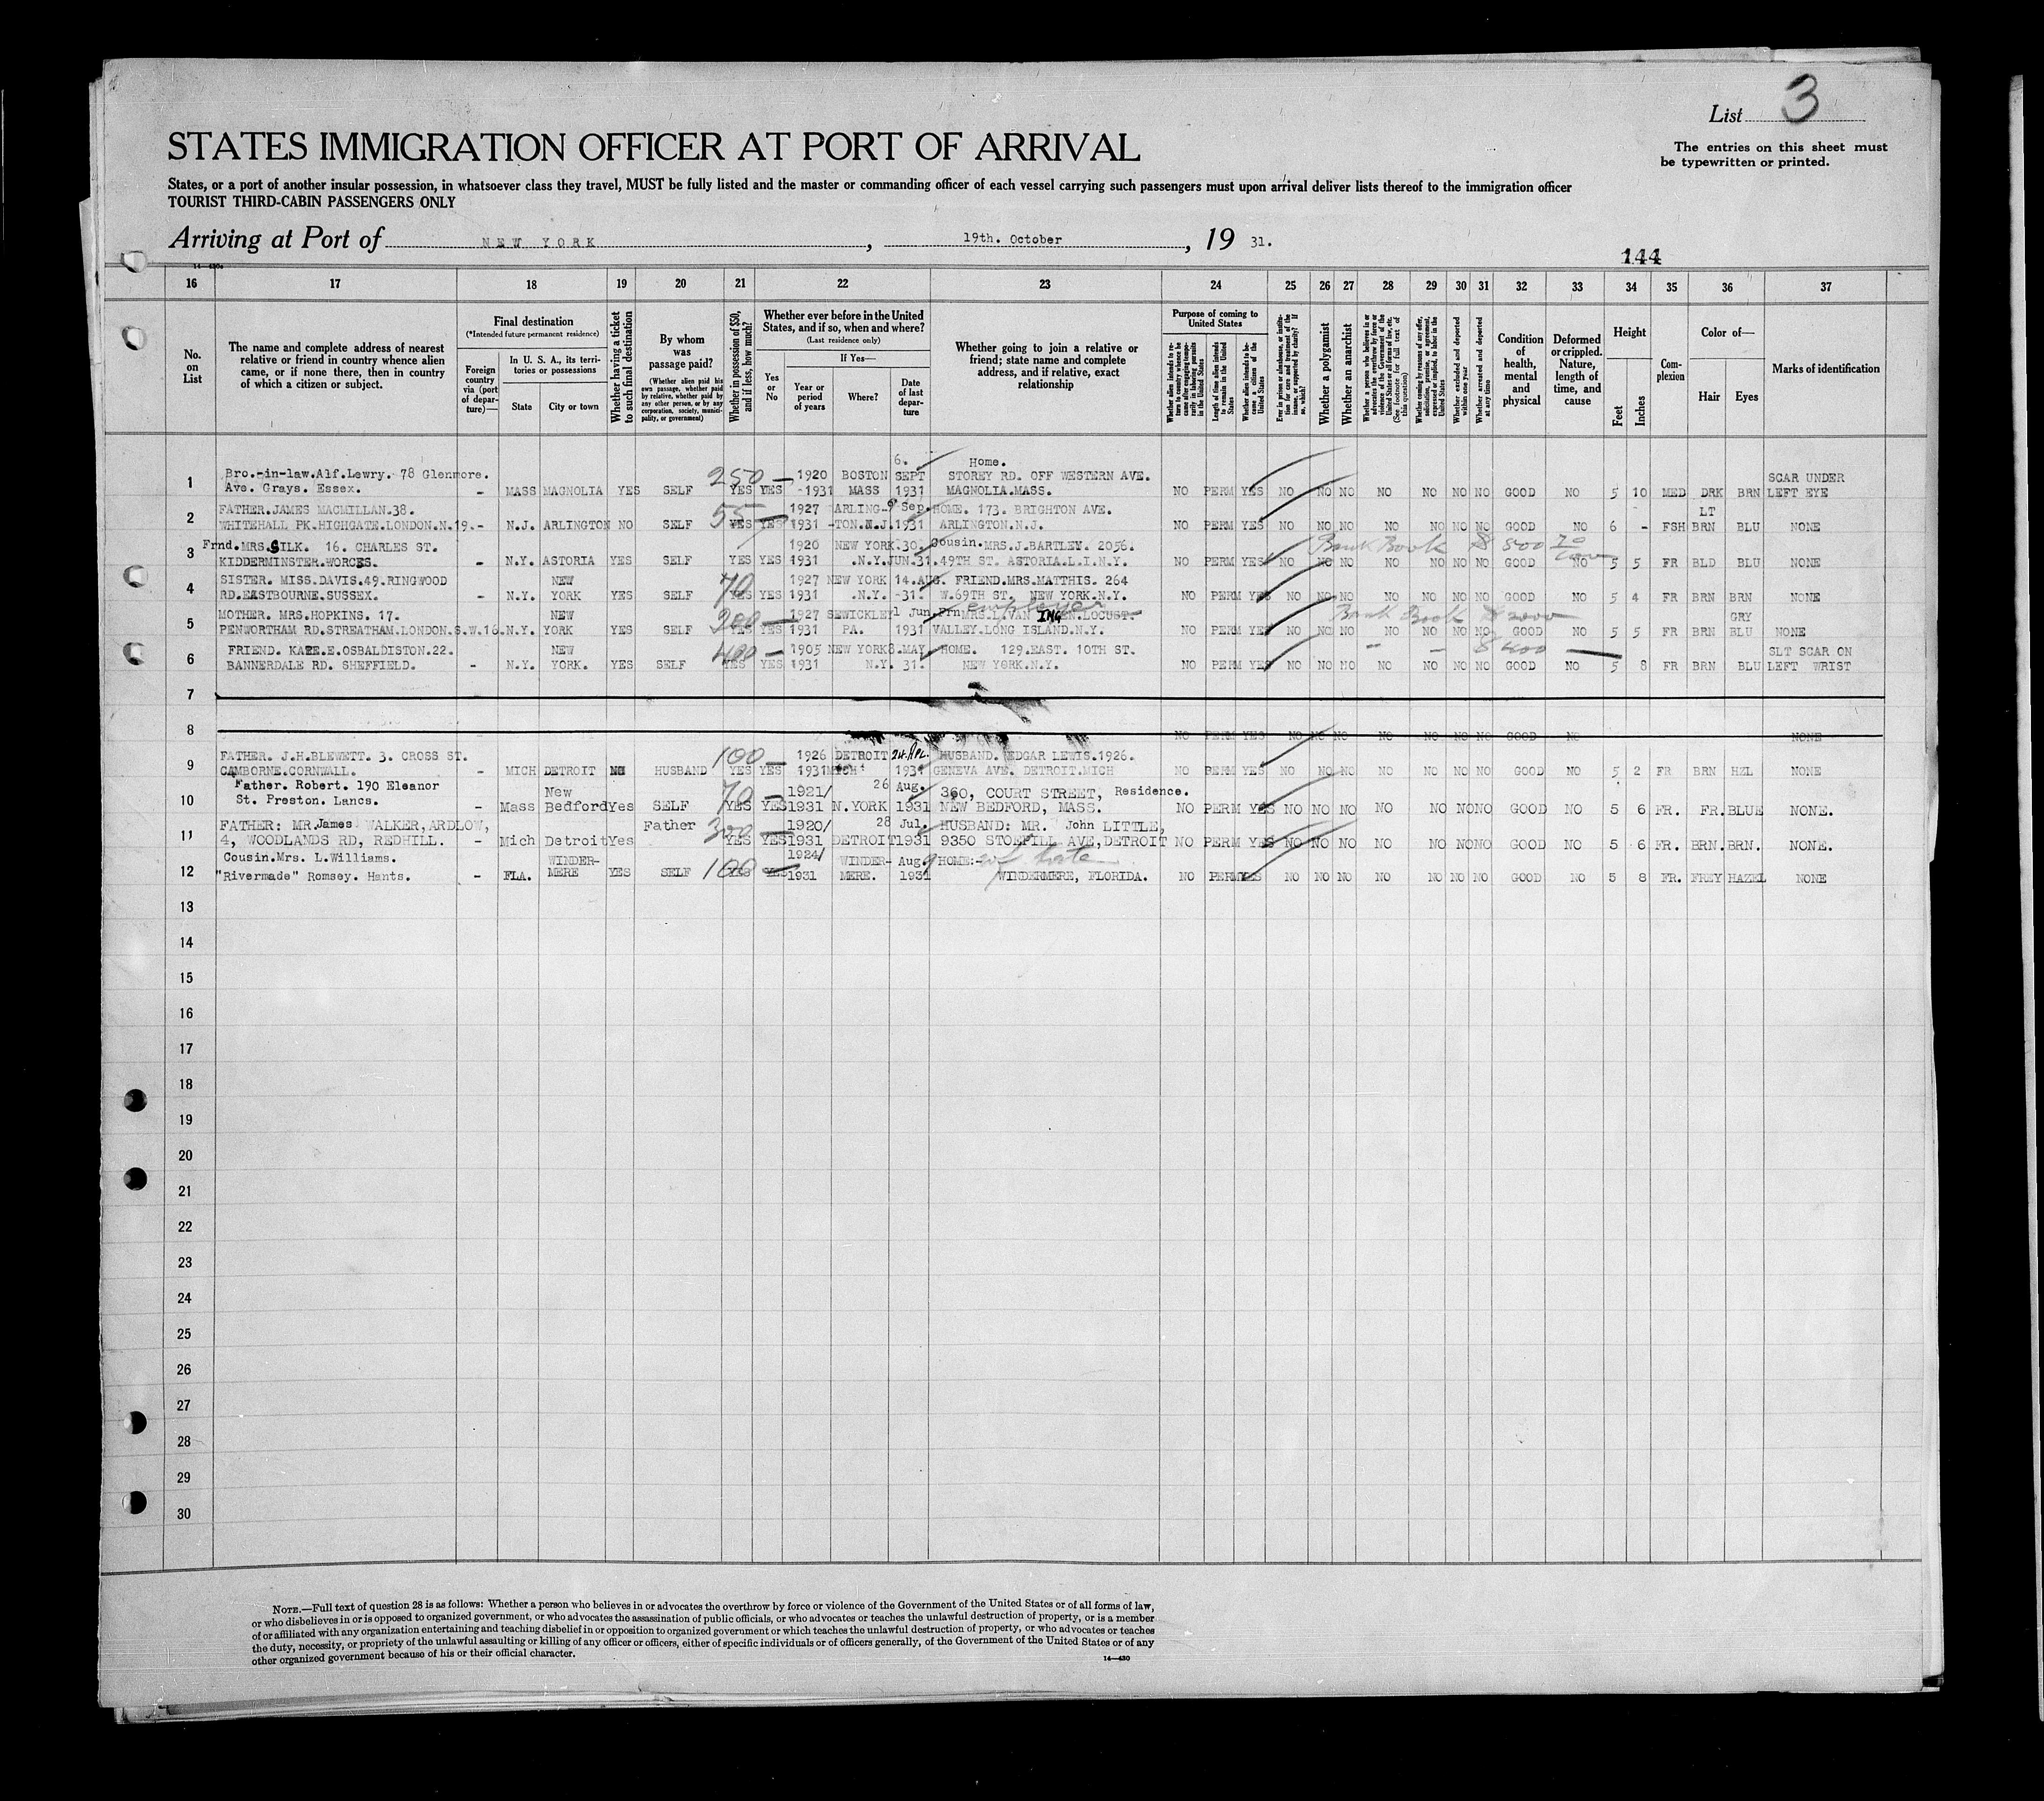 List 3
STATES IMMIGRATION OFFICER AT PORT OF ARRIVAL
The entries on this sheet must
be typewritten or printed.
States, or a port of another insular possession, in whatsoever class they travel, MUST be fully listed and the master or commanding officer of each vessel carrying such passengers must upon arrival deliver lists thereof to the immigration officer
TOURIST THIRD-CABIN PASSENGERS ONLY
Arriving at Port of NEW YORK, 19th. October, 19 31.
144
16 17 18 19 20 21 22 23 24 25 26 27 28 29 30 31 32 33 34 35 36 37
No. on List
The name and complete address of nearest
relative or friend in country whence alien
came, or if none there, then in country
of which a citizen or subject.
Final destination
(*Intended future permanent residence)
Foreign
country
via (port
of depar-
ture)—
In U. S. A., its terri-
tories or possessions
State
City or town
Whether having a ticket
to such final destination
By whom
was
passage paid?
(Whether alien paid his
own passage, whether paid
by relative, whether paid by
any other person, or by any
corporation, society, munici-
pality, or government)
Whether in possession of $50,
and if less, how much?
Whether ever before in the United
States, and if so, when and where?
(Last residence only)
Yes
or
No
If Yes—
Year or
period
of years
Where?
Date
of last
depar-
ture
Whether going to join a relative or
friend; state name and complete
address, and if relative, exact
relationship
Purpose of coming to
United States
Whether alien intends to re-
turn to country whence he
came after engaging tempo-
rarily in laboring pursuits
in the United States
Length of time alien intends
to remain in the United
States
Whether alien intends to be-
come a citizen of the
United States
Ever in prison or almshouse, or institu-
tion for care and treatment of the
insane, or supported by charity? If
so, which?
Whether a polygamist
Whether an anarchist
Whether a person who believes in or
advocates the overthrow by force or
violence of the Government of the
United States or all forms of law, etc.
(See footnote for full text of
this question)
Whether coming by reasons of any offer,
solicitation, promise, or agreement,
expressed or implied, to labor in the
United States
Whether excluded and deported
within one year
Whether arrested and deported
at any time
Condition
of
health,
mental
and
physical
Deformed
or crippled.
Nature,
length of
time, and
cause
Height
Feet
Inches
Com-
plexion
Color of—
Hair
Eyes
Marks of identification
1 Bro.-in-law.Alf.Lewry. 78 Glenmore. 250 1920 BOSTON 6. SEPT Home. STOREY RD. OFF WESTERN AVE. SCAR UNDER
Ave. Grays. Essex. - MASS MAGNOLIA YES SELF YES YES -1931 MASS 1931 MAGNOLIA.MASS. NO PERM YES NO NO NO NO NO NO NO GOOD NO 5 10 MED DRK BRN LEFT EYE
2 FATHER.JAMES MACMILLAN.38. 55 1927 ARLING- 9 Sep. HOME. 173. BRIGHTON AVE. LT
WHITEHALL PK.HIGHGATE.LONDON.N.19.- N.J. ARLINGTON NO SELF YES YES 1931 -TON.N.J. 1931 ARLINGTON.N.J. NO PERM YES NO NO NO NO NO NO NO GOOD NO 6 - FSH BRN BLU NONE
3 Frnd.MRS.SILK. 16. CHARLES ST. 1920 NEW YORK 30. Cousin.MRS.J.BARTLEY. 2056. Bank Book $ 800
KIDDERMINSTER.WORCES. - N.Y. ASTORIA YES SELF YES YES 1931 .N.Y. JUN.31. 49TH ST. ASTORIA.L.I.N.Y. NO PERM YES NO NO NO NO NO NO NO GOOD NO 5 5 FR BLD BLU NONE
4 SISTER. MISS.DAVIS.49.RINGWOOD NEW 70 1927 NEW YORK 14.AUG. FRIEND.MRS.MATTHIS. 264
RD.EASTBOURNE.SUSSEX. - N.Y. YORK YES SELF YES YES 1931 .N.Y. -31. W.69TH ST. NEW YORK.N.Y. NO PERM YES NO NO NO NO NO NO NO GOOD NO 5 4 FR BRN BRN NONE
employer
5 MOTHER. MRS.HOPKINS. 17. NEW 200 1927 SEWICKLEY 1 Jun. Frn MRS.L.VAN ING EN.LOCUST- Bank Book $ 2000 GRY
PENWORTHAM RD.STREATHAM.LONDON.S.W.16. N.Y. YORK YES SELF YES YES 1931 PA. 1931 VALLEY.LONG ISLAND.N.Y. NO PERM YES NO NO NO NO NO NO NO GOOD NO 5 5 FR BRN BLU NONE
6 FRIEND. KATE.E.OSBALDISTON.22. NEW 400 1905 NEW YORK 8.MAY. HOME. 129.EAST. 10TH ST. - - $ 400 SLT SCAR ON
BANNERDALE RD. SHEFFIELD. - N.Y. YORK. YES SELF YES YES 1931 N.Y. 31. NEW YORK.N.Y. NO PERM YES NO NO NO NO NO NO NO GOOD NO 5 8 FR BRN BLU LEFT WRIST
7
8 NO PERM YES NO NO NO NO NO NO GOOD NO NONE
9 FATHER. J.H.BLEWETT. 3. CROSS ST. 100 1926 DETROIT 24.APL. HUSBAND. EDGAR LEWIS.1926.
CAMBORNE.CORNWALL. - MICH DETROIT NO HUSBAND YES YES 1931 MICH 1931 GENEVA AVE. DETROIT.MICH NO PERM YES NO NO NO NO NO NO NO GOOD NO 5 2 FR BRN HZL NONE
10 Father. Robert. 190 Eleanor New 70 1921/ 26 Aug. 360, COURT STREET, Residence.
St. Preston. Lancs. - Mass Bedford Yes SELF YES YES 1931 N.YORK 1931 NEW BEDFORD, MASS. NO PERM YES NO NO NO NO NO NO NO GOOD NO 5 6 FR. FR. BLUE NONE.
11 FATHER: MR.James WALKER,ARDLOW, Father 300 1920/ 28 Jul. HUSBAND: MR. John LITTLE,
4, WOODLANDS RD, REDHILL. - Mich Detroit Yes YES YES 1931 DETROIT 1931 9350 STOEPILL AVE,DETROIT NO PERM YES NO NO NO NO NO NO NO GOOD NO 5 6 FR. BRN. BRN. NONE.
12 Cousin.Mrs. L.Williams. WINDER- 100 1924/ WINDER- Aug 9 HOME:-
"Rivermade" Romsey. Hants. - FLA. MERE YES SELF YES YES 1931 MERE. 1931 WINDERMERE, FLORIDA. NO PERM YES NO NO NO NO NO NO NO GOOD NO 5 8 FR. FREY HAZEL NONE
13
14
15
16
17
18
19
20
21
22
23
24
25
26
27
28
29
30
NOTE.—Full text of question 28 is as follows: Whether a person who believes in or advocates the overthrow by force or violence of the Government of the United States or of all forms of law,
or who disbelieves in or is opposed to organized government, or who advocates the assassination of public officials, or who advocates or teaches the unlawful destruction of property, or is a member
of or affiliated with any organization entertaining and teaching disbelief in or opposition to organized government or which teaches the unlawful destruction of property, or who advocates or teaches
the duty, necessity, or propriety of the unlawful assaulting or killing of any officer or officers, either of specific individuals or of officers generally, of the Government of the United States or of any
other organized government because of his or their official character.
14—430